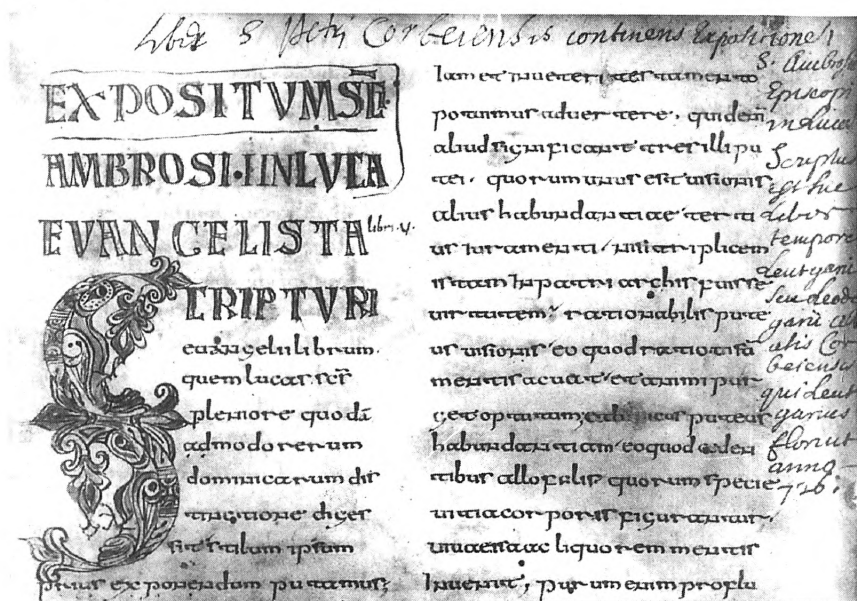 Liber S Petri Corbeiensis continens Expositionem
S. Ambrosii
Episcopi
in Lucam
Scriptus
est hic
liber
tempore
leutgarii
seu leode
garii ab
atis Cor
beiensis
qui leut
garius
floruit
anno
726.
EXPOSITVM SCE
AMBROSI·IINLVCA
EVANGELISTA libri·V·
SCRIPTVRI
euangelii librum.
quem lucas scr
pleniore quodā
admodo rerum
dominicarum dis
tinctione diges
sit stilum ipsum
prius exponendum putamus;
Iam et inueteri testamento
potuimus aduertere, quidem
aliud significant tres illi pu
tei. quorum unus est uisionis
alius habundantiae terti
us iuramenti, nisi triplicem
istam in patriarchis fuisse
uirtutem; rationabilis pute
us uisionis eo quod rationisā
mentis acuat et animi pur
get optutum,
habundantiam, eo quod ceden
tibus allofilis quorum specie
uitia corporis figurantur,
uiuae isaac liquorem mentis
inuenit, purum enim proflu